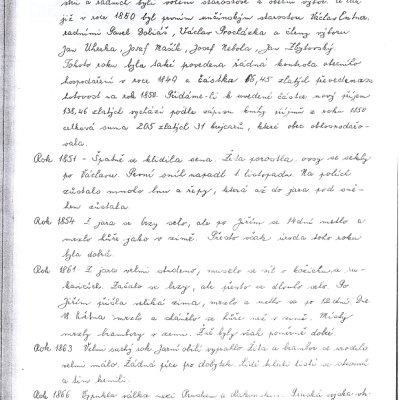 a radních byli voleni starostové a obecní výbor. a tak
již v roce 1850 byli prvním starostou Václav
radními Pavel Doliáš, Václav Procházka a členy výboru
Jan Uherka, Josef Mašík, Josef Nebola, Jan Zbytovský
Tohoto roku byla také provedena řádná kontrola obecního
hospodaření v roce 1849 a částka 66,45 zlatých převedena
totovod na rok 1850. Přidáme-li k uvedené částce nový příjem
138,46 zlatých vychází podle výpisu knihy příjmů z roku 1850
celková suma 205 zlatých 31 krejcarů, které obec obhospodařo-
vala.
Rok 1851 - Špatně se klidila sena. Žita porostla, ovsy se sekly
po Václavu. První sníh napadl 1. listopadu. Na polích
zůstalo mnoho lnu a řepy, která až do jara pod sně-
hem zůstala.
Rok 1854 I jara se brzy selo, ale po Jiřím se 14 dní metlo a
mrzlo hůře jako v zimě. Přesto však úroda toho roku
byla dobrá.
Rok 1861 Z jara velmi studeno, muselo se sít v kožichu a ru-
kavicích. Začalo se brzy, ale přesto se dlouho selo. Po
Jiřím přišla veliká zima, mrzlo a metlo se po 12 dní. Dne
května mrzlo a chůze než v zimě. Místy
mrzly brambory v zemi. Žně byly však poměrně dobré
Rok 1863 Velmi suchý rok. Jarní obilí vyprahlo. Žita a brambor se urodilo
velmi málo. Žádná píce pro dobytek. Lidé klidili listí se stromů
a tím krmili.
Rok 1866 Vypukla válka mezi Pruskem a Rakouskem. Pruská vojska